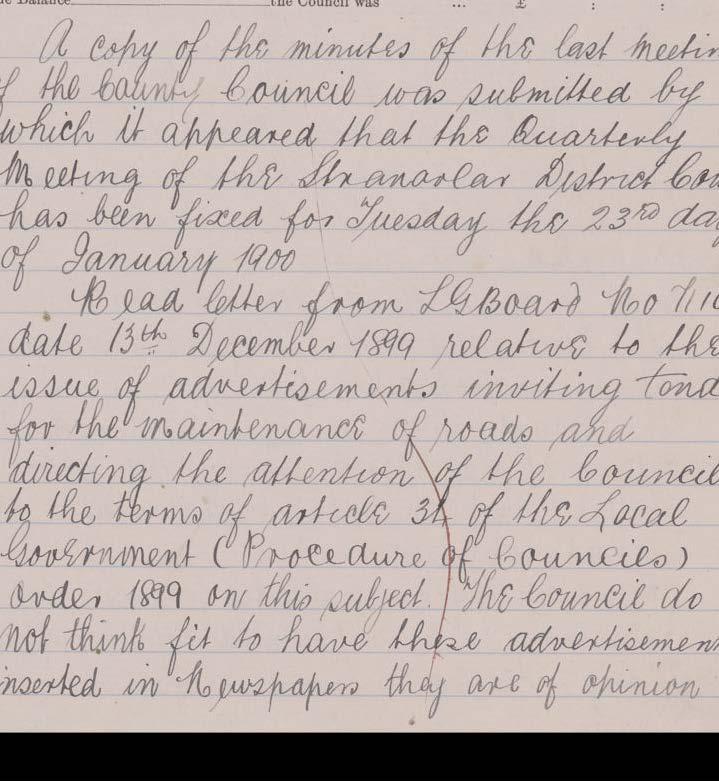 the Council was ... £ : :
A copy of the minutes of the last meetin
f the County Council was submitted by
which it appeared that the Quarterly
Meeting of the Stranorlar District Cou
has been fixed for Tuesday the 23rd day
of January 1900
Read letter from LGBoard No
date 13th December 1899 relative to the
issue of advertisements inviting Tend
for the maintenance of roads and
directing the attention of the Council
to the terms of article 31 of the Local
Government (Procedure of Councils)
order 1899 on this subject. The Council do
not think fit to have these advertisemen
inserted in Newspapers they are of opinion